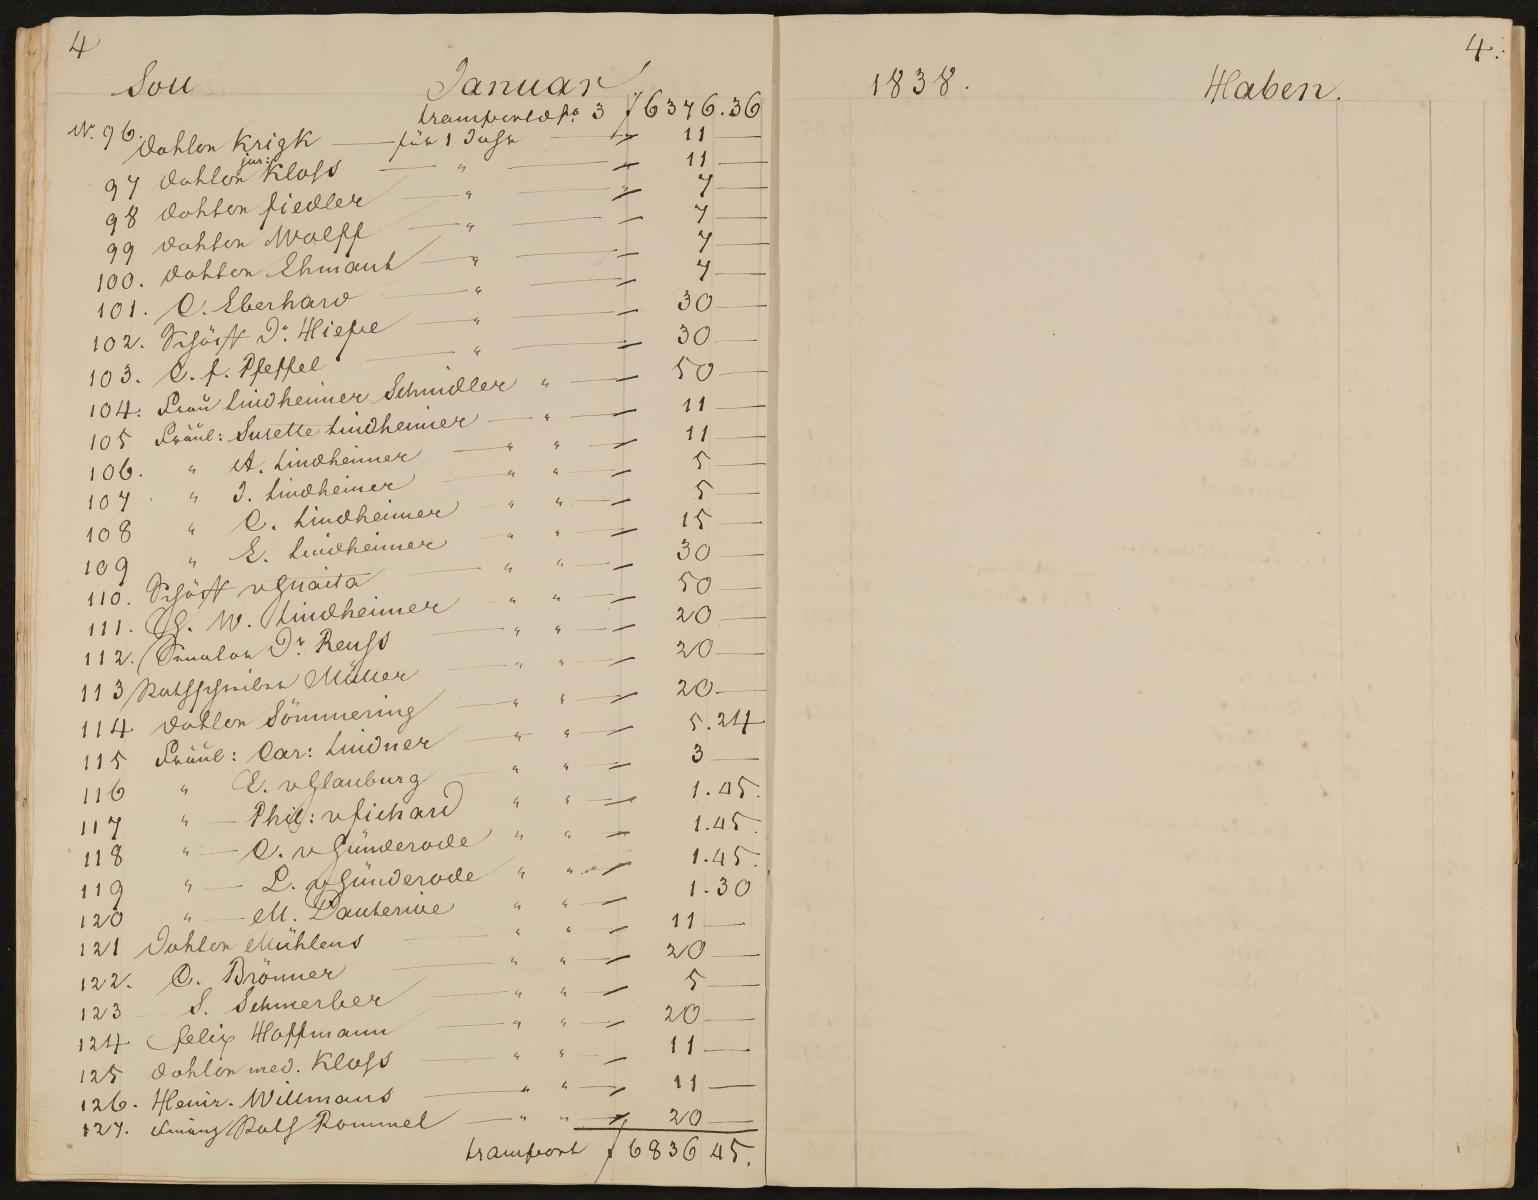 4
Soll Januar
transport v. fo. 3 f 6376.36
Nr. 96. Doktor Krigk — für 1 Jahr — 11 —
97 Doktor jur: Kloss — " — 11 —
98 Doktor Fiedler — " — 7 —
99 Doktor Wolff — " — 7 —
100. Doktor Ehmant — " — 7 —
101. C. Eberhard — " — 7 —
102. Schöff Dr. Hiepe — " — 30 —
103. C. F. Pfeffel — " — 30 —
104. Frau Lindheimer Schmidler " — 50 —
105 Fräul: Susette Lindheimer — " — 11 —
106. " A. Lindheimer — " " — 11 —
107 " J. Lindheimer — " " — 5 —
108 " C. Lindheimer — " " — 5 —
109 " E. Lindheimer — " " — 15 —
110. Schöff v Guaita — " " — 30 —
111. G. W. Lindheimer — " " — 50 —
112. Senator Dr. Reuss — " " — 20 —
113 Rathschreiber Müller — " " — 20 —
114 Doktor Sömmering — " " — 20 —
115 Fräul: Car: Lindner — " " — 5.24
116 " E. v Glauburg — " " — 3 —
117 " — Phil: v Fichard " " — 1.45.
118 " — C. v Günderode " " — 1.45.
119 " — L. v Günderode " " — 1.45.
120 " — M. Dauterive " " — 1.30
121 Doktor Mühlens — " " — 11 —
122. C. Brönner — " " — 20 —
123 S. Schmerber — " " — 5 —
124 Felix Hoffmann — " " — 20 —
125 Doktor med. Kloss — " " — 11 —
126. Heinr. Willmans — " " — 11 —
127. Finanz Rath Rommel — " " — 20 —
transport f 6836 45.
4.
1838. Haben.